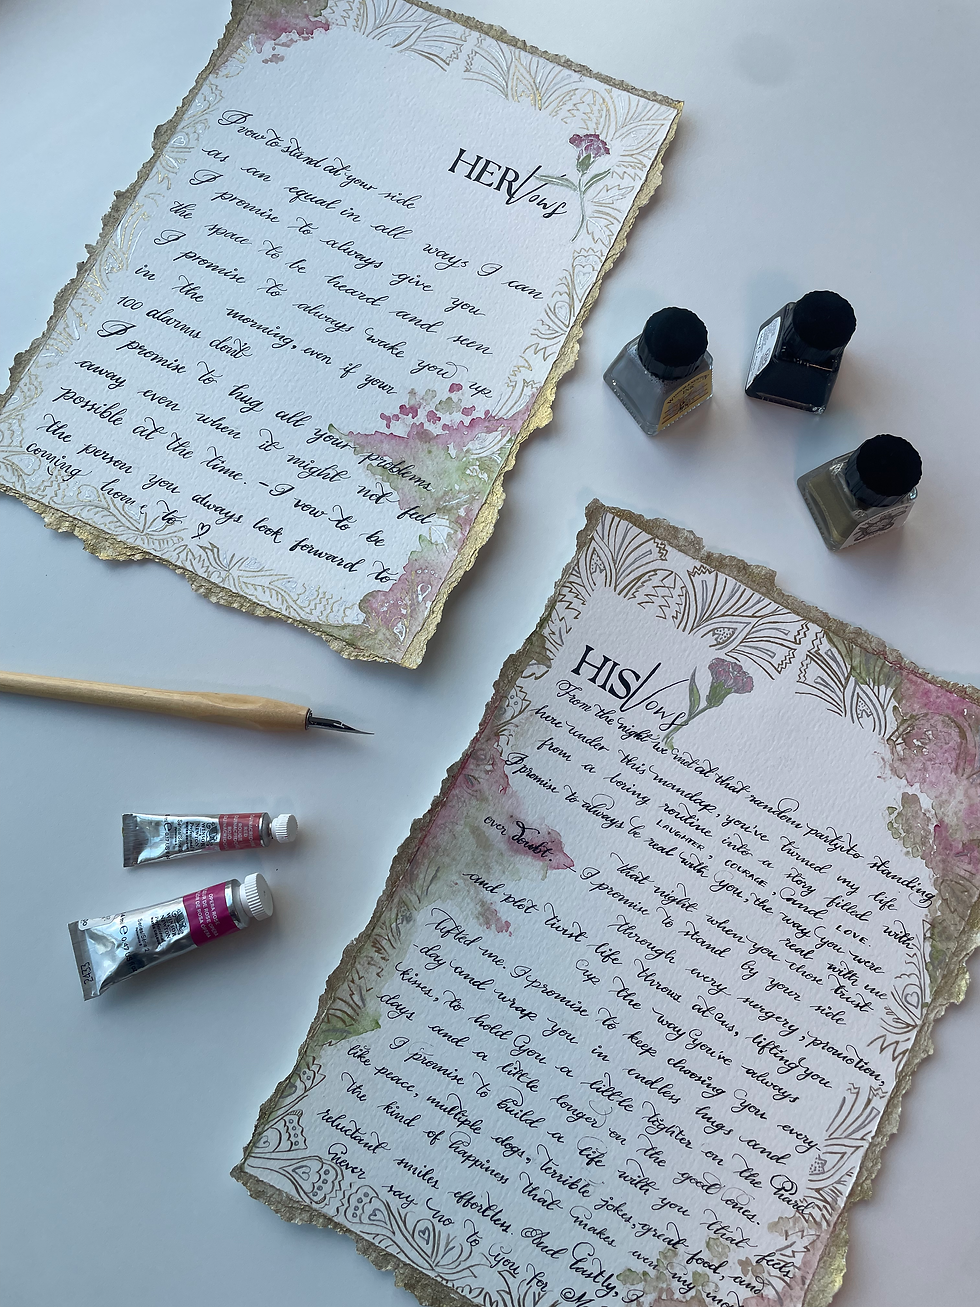 HER Vows
I vow to stand at your side
as an equal in all ways I can
I promise to always give you
the space to be heard and seen
I promise to always wake you up
in the morning, even if your
100 alarms don't
I promise to hug all your problems
away even when it might not feel
possible at the time. - I vow to be
the person you always look forward to
coming home to
HIS Vows
From the night we met at that random party to standing
here under this mandap, you've turned my life
from a boring routine into a story filled with
LAUGHTER, COURAGE, and LOVE.
I promise to always be real with you, the way you were real with me
that night when you chose trust
over doubt. - I promise to stand by your side
through every surgery, promotion,
and plot twist life throws at us, lifting you
up the way you've always
lifted me. I promise to keep choosing you every
day and wrap you in endless hugs and
kisses, to hold you a little tighter on the hard
days and a little longer on the good ones.
I promise to build a life with you that feels
like peace, multiple dogs, terrible jokes, great food, and
the kind of happiness that makes even my most
reluctant smiles effortless. And lastly, I
never say no to you for
OPERA ROSE